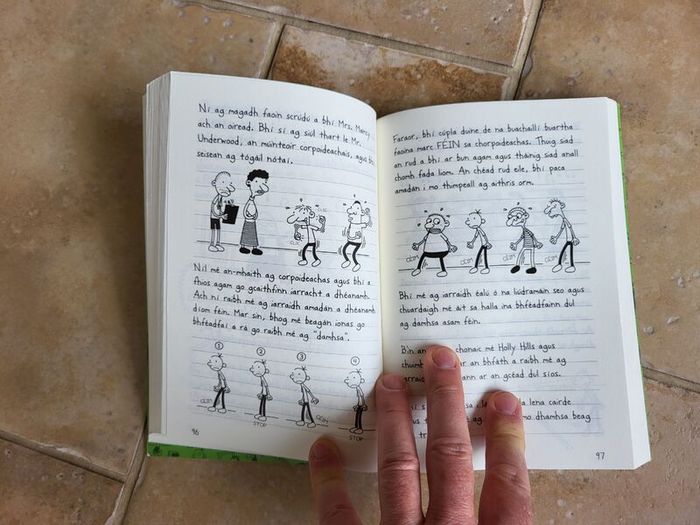 Ní ag magadh faoin scrúdú a bhí Mrs. Mancy
ach an oiread. Bhí sí ag siúl thart le Mr.
Underwood, an múinteoir corpoideachais, agus bhí
seisean ag tógáil nótaí.
Níl mé an-mhaith ag corpoideachas agus bhí a
fhios agam go gcaithfinn iarracht a dhéanamh.
Ach ní raibh mé ag iarraidh amadán a dhéanamh
díom féin. Mar sin, bhog mé beagán ionas go
bhféadfaí a rá go raibh mé ag "damhsa".
1 2 3 4
STOP STOP
96
Faraor, bhí cúpla duine de na buachaillí buartha
faoina marc FÉIN sa chorpoideachas. Thuig siad
an rud a bhí ar bun agam agus tháinig siad anall
chomh fada liom. An chéad rud eile, bhí paca
amadán i mo thimpeall ag aithris orm.
Bhí mé ag iarraidh éalú ó na liúdramáin seo agus
chuardaigh mé áit sa halla ina bhféadfainn dul
ag damhsa asam féin.
B'in an chonaic mé Holly Hills agus
ar an bhfáth a raibh mé ag
ann ar an gcéad dul síos.
Bhí s la lena cairde
agus mo dhamhsa beag
97